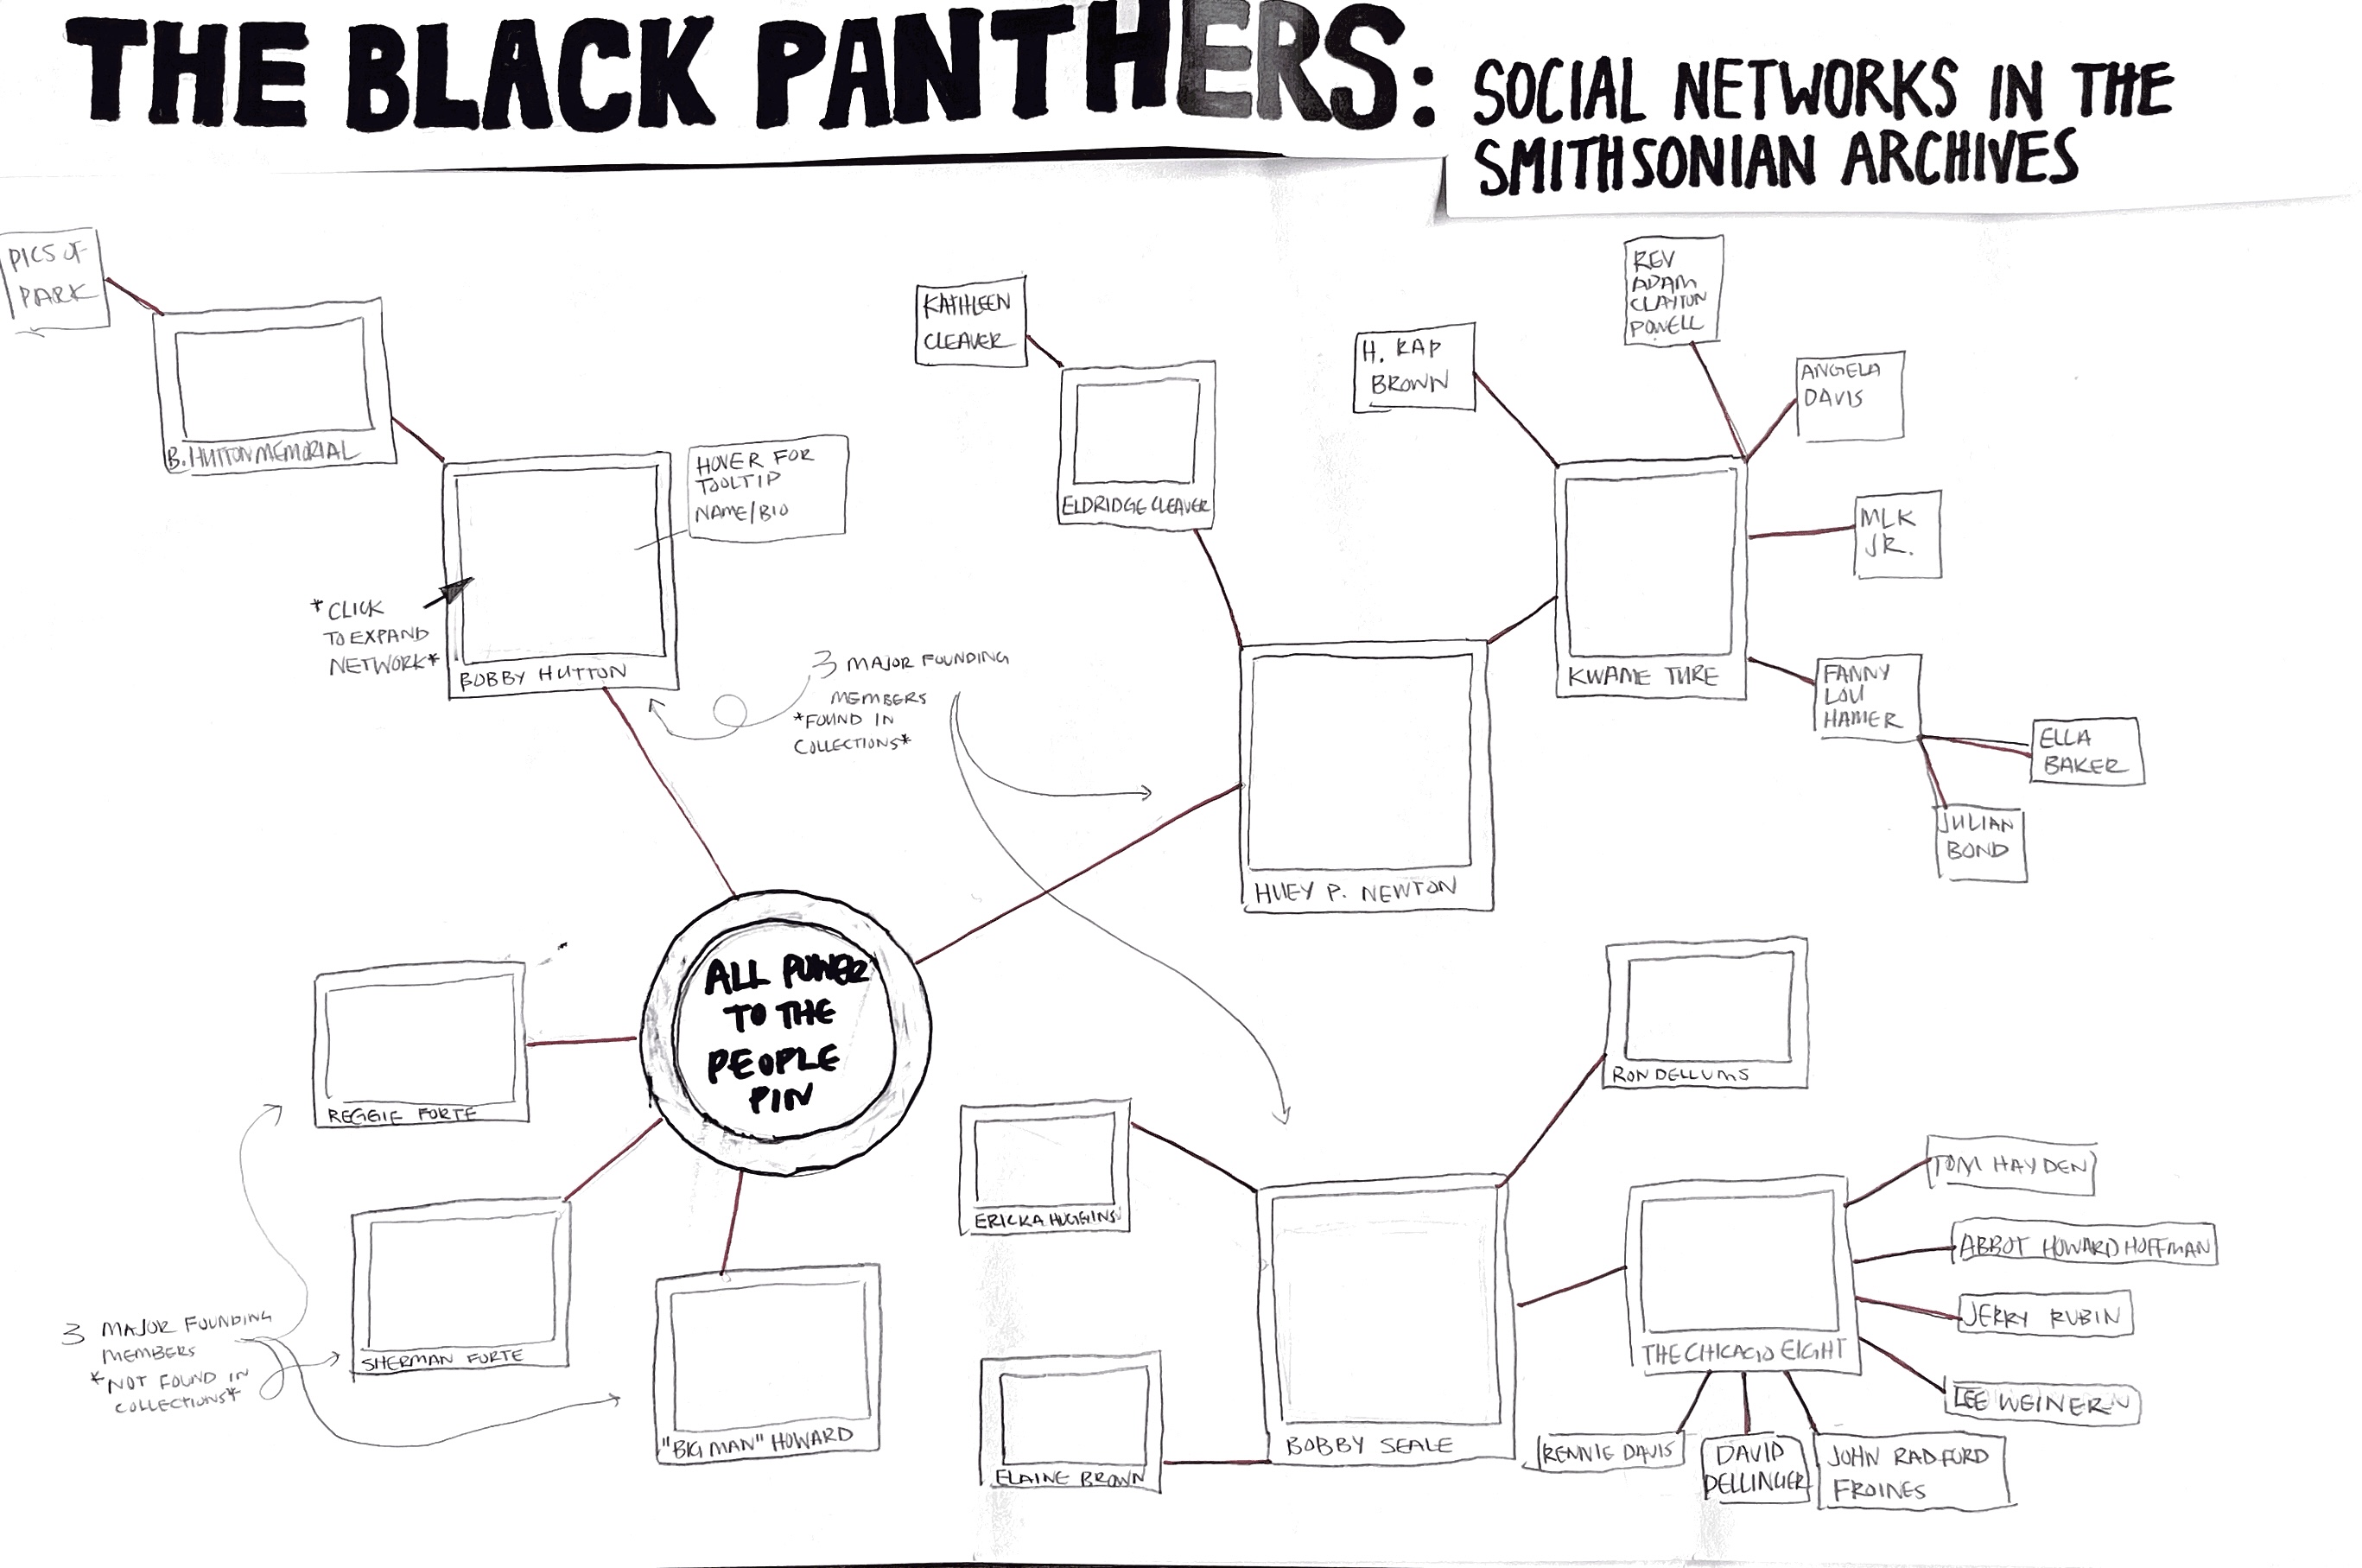 THE BLACK PANTHERS:
SOCIAL NETWORKS IN THE
SMITHSONIAN ARCHIVES
PICS OF
PARK
B. HUTTON MEMORIAL
HOVER FOR
TOOLTIP
NAME/BIO
*CLICK
TO EXPAND
NETWORK*
BOBBY HUTTON
3 MAJOR FOUNDING
MEMBERS
*FOUND IN
COLLECTIONS*
KATHLEEN
CLEAVER
ELDRIDGE CLEAVER
H. RAP
BROWN
REV
ADAM
CLAYTON
POWELL
ANGELA
DAVIS
MLK
JR.
KWAME TURE
FANNY
LOU
HAMER
ELLA
BAKER
JULIAN
BOND
HUEY P. NEWTON
ALL POWER
TO THE
PEOPLE
PIN
REGGIE FORTE
SHERMAN FORTE
"BIG MAN" HOWARD
3 MAJOR FOUNDING
MEMBERS
*NOT FOUND IN
COLLECTIONS*
ERICKA HUGGINS
ELAINE BROWN
BOBBY SEALE
RON DELLUMS
THE CHICAGO EIGHT
TOM HAYDEN
ABBOT HOWARD HOFFMAN
JERRY RUBIN
LEE WEINER
RENNIE DAVIS
DAVID
DELLINGER
JOHN RADFORD
FROINES